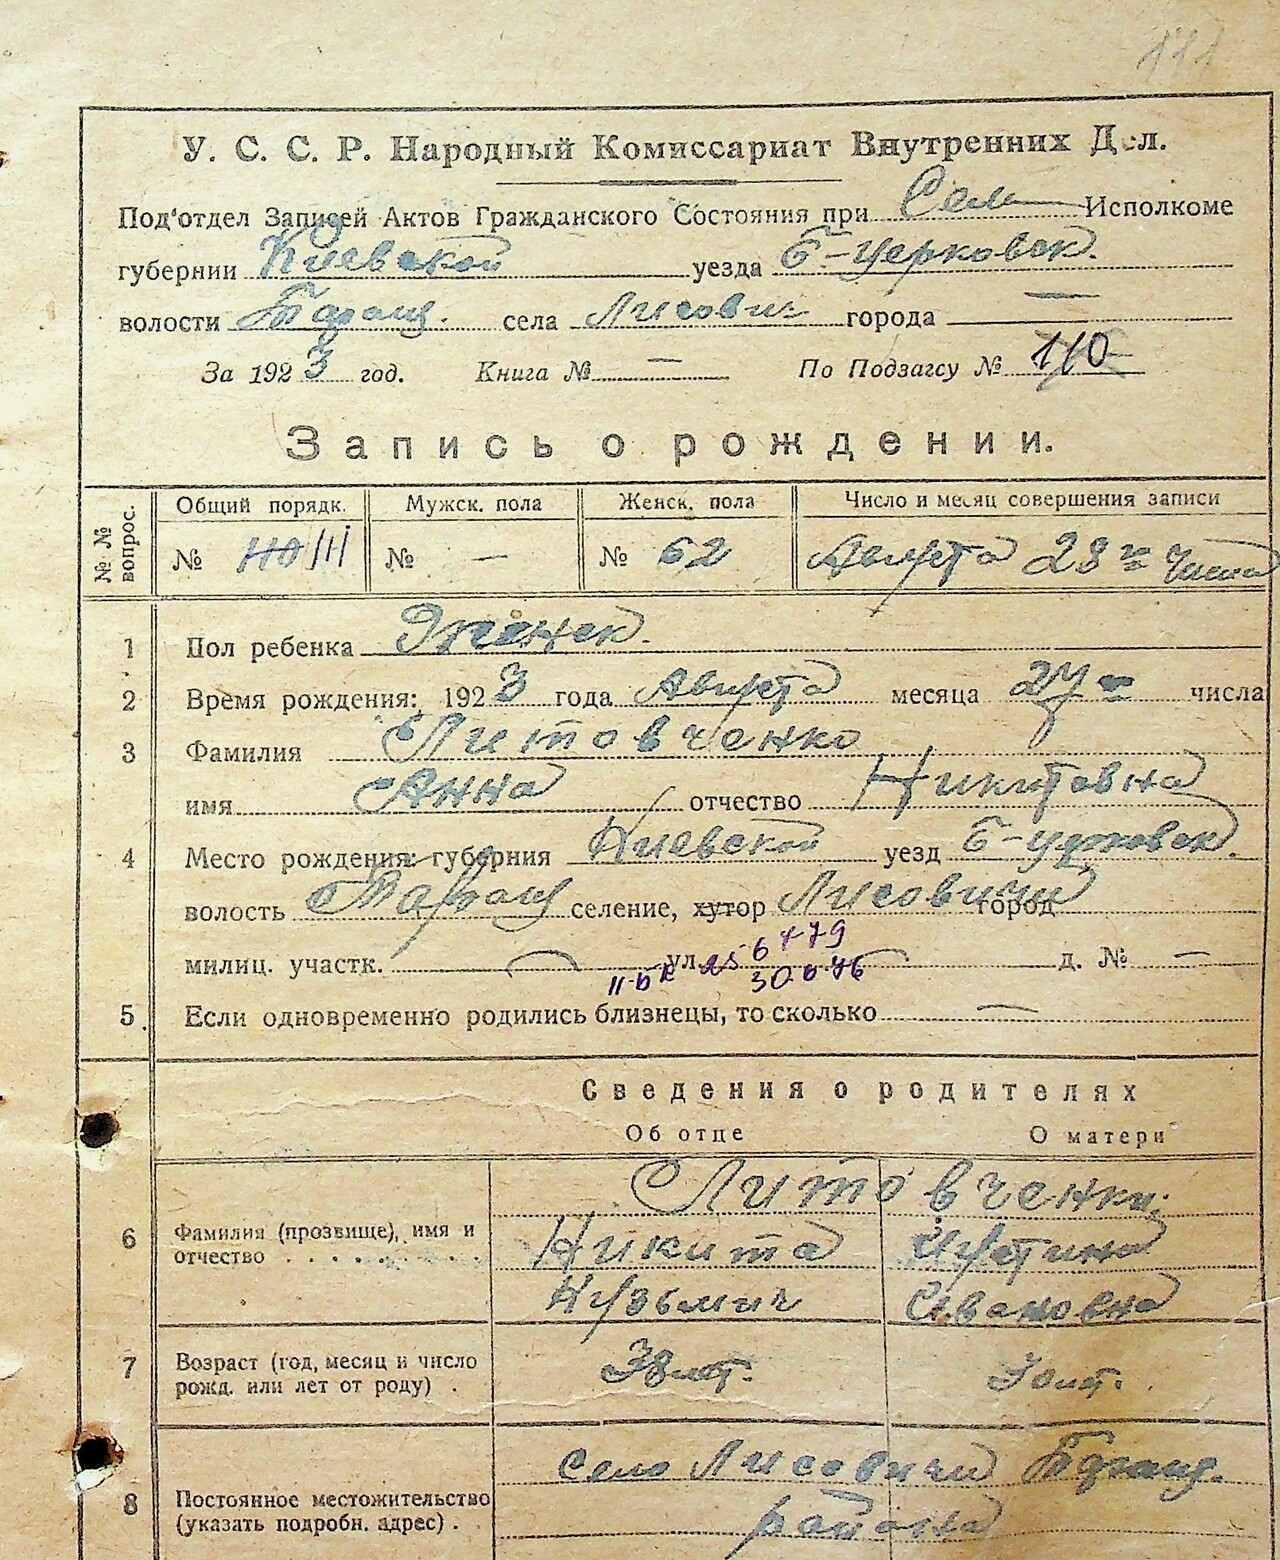 111
У. С. С. Р. Народный Комиссариат Внутренних Дел.
Под'отдел Записей Актов Гражданского Состояния при Сель Исполкоме
губернии Киевской уезда Б-церковск.
волости Таращ. села Лисович города —
За 1923 год. Книга № — По Подзагсу № 110
Запись о рождении.
№ № вопрос. Общий порядк. Мужск. пола Женск. пола Число и месяц совершения записи
№ 110 111 № — № 62 Августа 28го числа
1 Пол ребенка Женск.
2 Время рождения: 1923 года Августа месяца 27го числа
3 Фамилия Литовченко
имя Анна отчество Никитовна
4 Место рождения: губерния Киевской уезд Б-церковск.
волость Таращ селение, хутор Лисовичи город
милиц. участк. — ул. — д. № —
30.6.76
5. Если одновременно родились близнецы, то сколько —
Сведения о родителях
Об отце О матери
Литовченки:
6 Фамилия (прозвище), имя и отчество . . . . . . Никита Устина
Кузьмич Ивановна
7 Возраст (год, месяц и число рожд. или лет от роду) . 38 лет. 30 лет.
8 Постоянное местожительство (указать подробн. адрес) . Село Лисовичи Таращ.
района